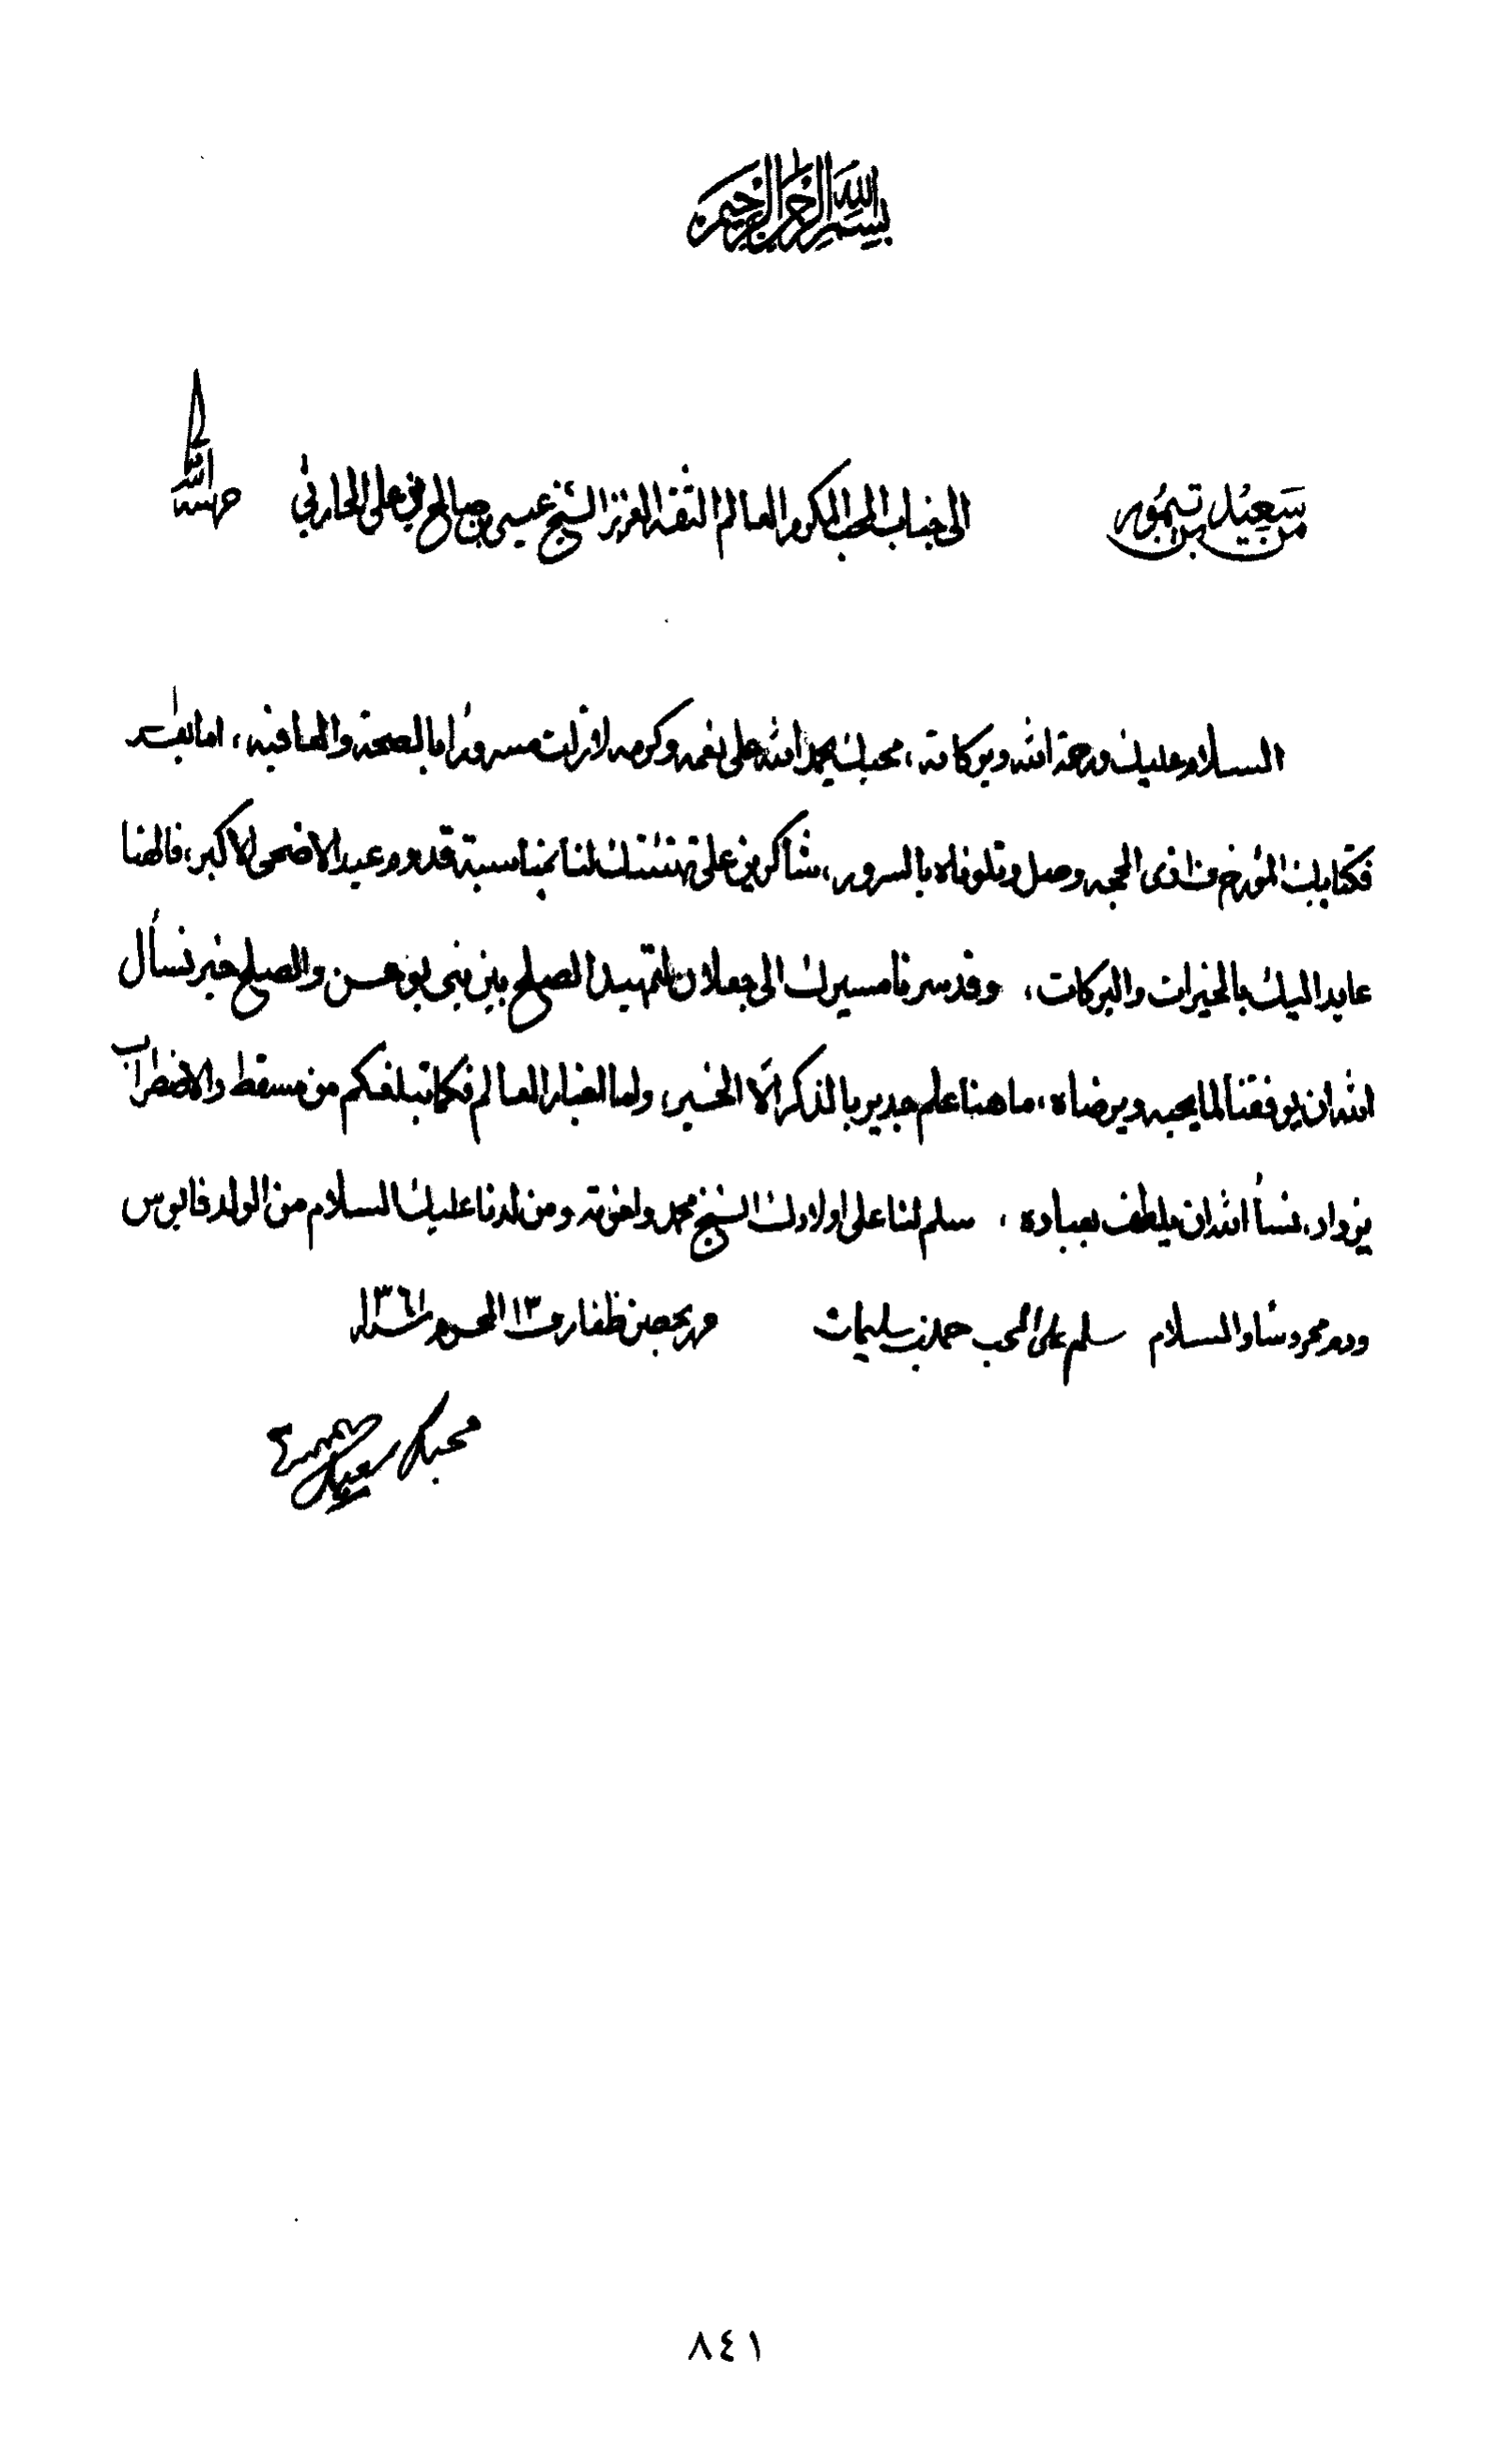 بسم الله الرحمن الرحيم
من سعيد بن تيمور الى جناب المحب المكرم العالم الثقة العزيز الشيخ عيسى بن صالح بن علي الحارثي حرسه الله
السلام عليك ورحمة الله وبركاته ، محبك بحمد الله على نعمه وكرمه لازلت مسرورًا بالصحة والعافيه ، اما بعد
فكتابك المؤرخ ذى الحجه وصل وتلوناه بالسرور ، شاكرين على تهنئتك لنا بمناسبة قدوم عيد الاضحى الاكبر ، فالهنا
عايد اليك بالخيرات والبركات ، وقد سرنا مسيرك الى جعلان لتمهيد الصلح بين بني بو حسن والصلح خير نسأل
الله ان يوفقنا لما يحبه ويرضاه ، ما هنا علم جدير بالذكر الا الخير ، واما اخبار العالم فكما تبلغكم من مسقط والاضطراب
يزداد ، نسأ الله ان يلطف بعباده ، سلم لنا على اولادك الشيخ محمد واخوته ومن لدنا عليك السلام من الولد قابوس
ودم محروسًا والسلام سلم على المحب حمد بن سليمان حرر بحصن ظفار ١٣ المحرم سنة ١٣٦١
محبك سعيد
٨٤١